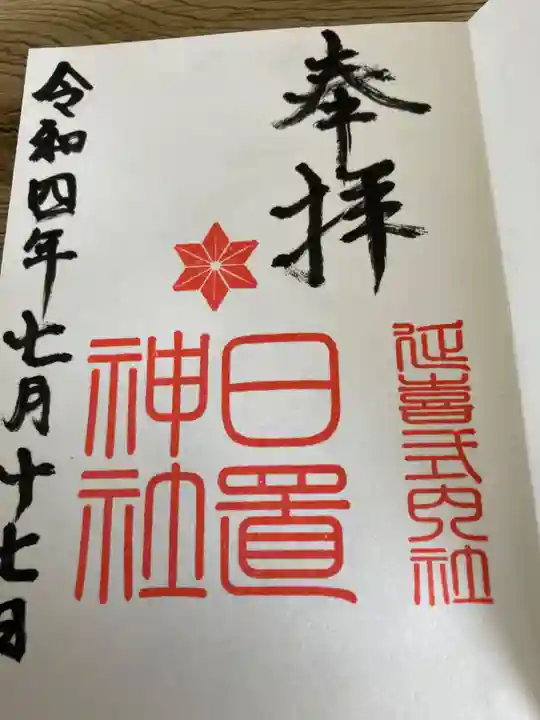 奉拝
延喜式内社
日置
神社
令和四年七月十七日